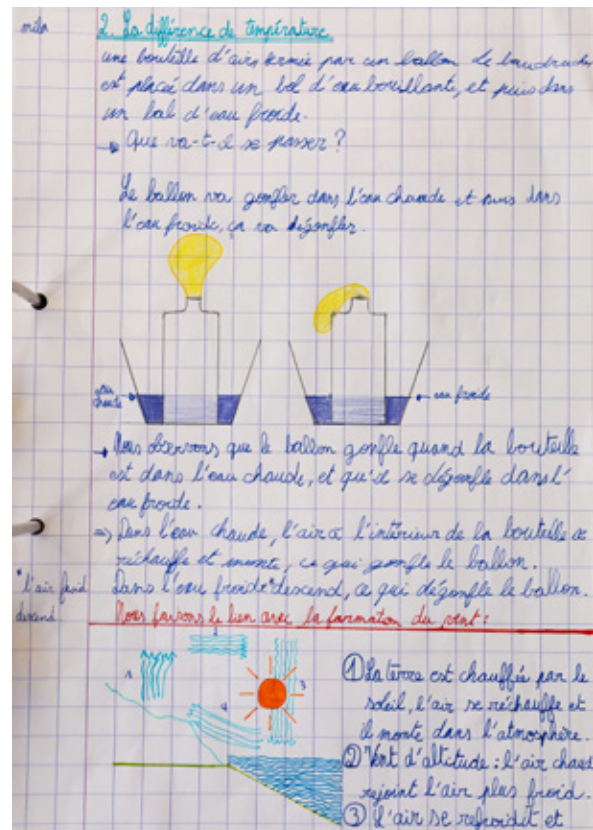 mila
2. La différence de température
une bouteille d'air fermée par un ballon de baudruche
est placée dans un bol d'eau bouillante, et puis dans
un bol d'eau froide.
→ Que va-t-il se passer ?
Le ballon va gonfler dans l'eau chaude et puis dans
l'eau froide, ça va dégonfler.
eau
chaude
eau froide
→ Nous observons que le ballon gonfle quand la bouteille
est dans l'eau chaude, et qu'il se dégonfle dans l'
eau froide.
=> Dans l'eau chaude, l'air à l'intérieur de la bouteille se
réchauffe et monte, ce qui gonfle le ballon.
Dans l'eau froide * descend, ce qui dégonfle le ballon.
* l'air froid
descend.
Nous faisons le lien avec la formation du vent :
2
1
3
4
① La terre est chauffée par le
soleil, l'air se réchauffe et
il monte dans l'atmosphère.
② Vent d'altitude : l'air chaud
rejoint l'air plus froid.
③ L'air se refroidit et